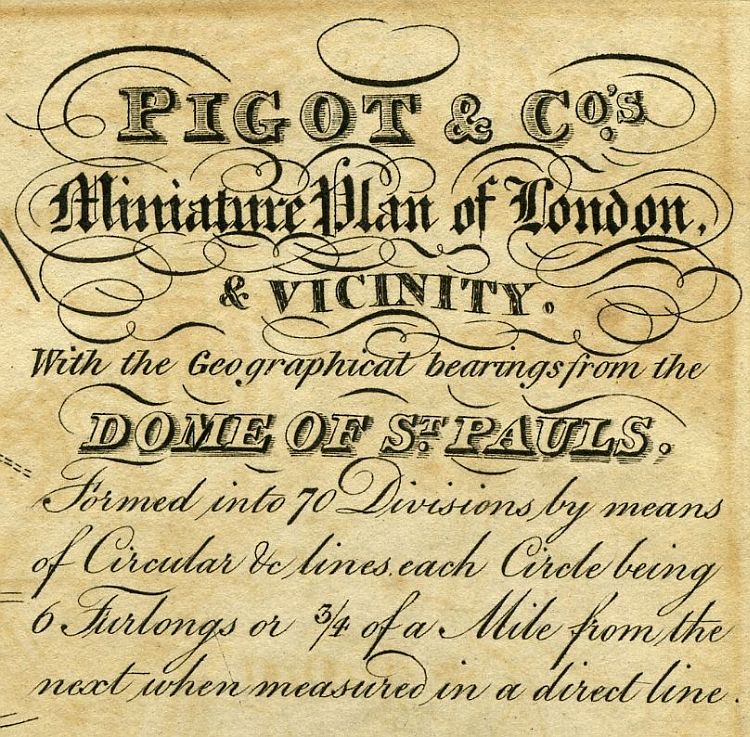 PIGOT & Co's.
Miniature Plan of London,
& VICINITY.
With the Geographical bearings from the
DOME OF ST. PAULS.
Formed into 70 Divisions by means
of Circular &c lines each Circle being
6 Furlongs or 3/4 of a Mile from the
next when measured in a direct line.